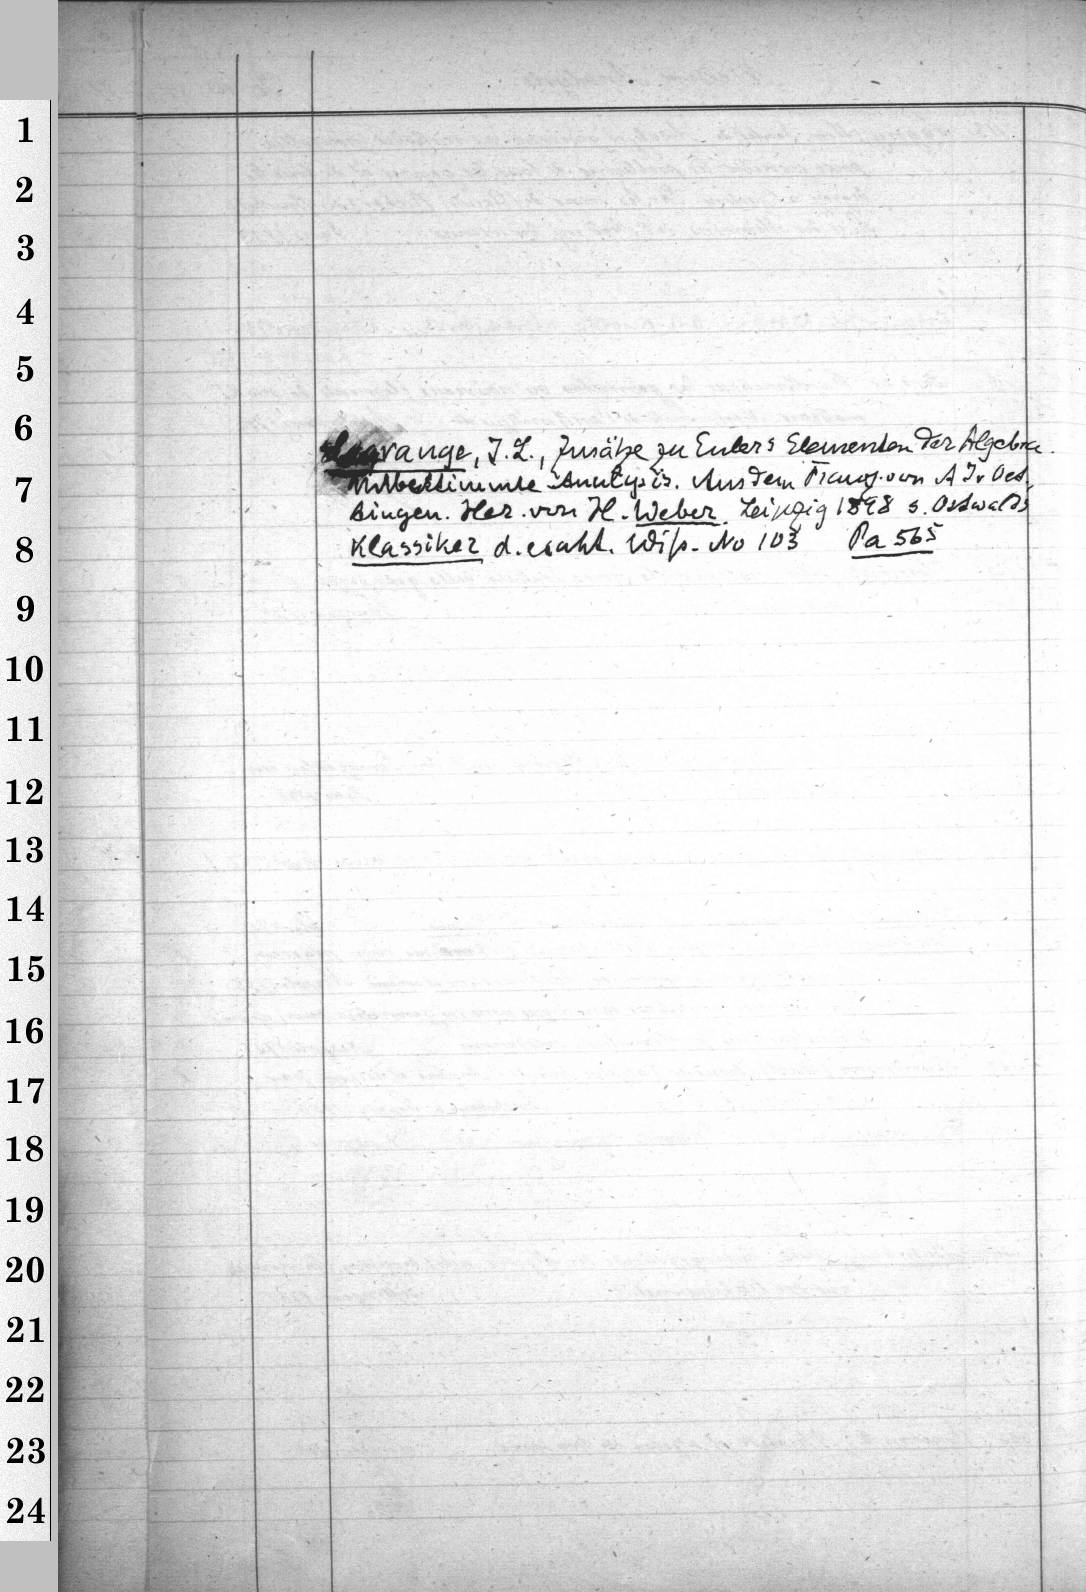 1
2
3
4
5
6
Lagrange, J. L., Zusätze zu Eulers Elementen der Algebra.
7
Unbestimmte Analysis. Aus dem Französ. von A. J. v. Oet-
tingen. Her. von H. Weber. Leipzig 1898 s. Ostwalds
8
Klassiker d. exakt. Wiss. No 103 Pa 565
9
10
11
12
13
14
15
16
17
18
19
20
21
22
23
24